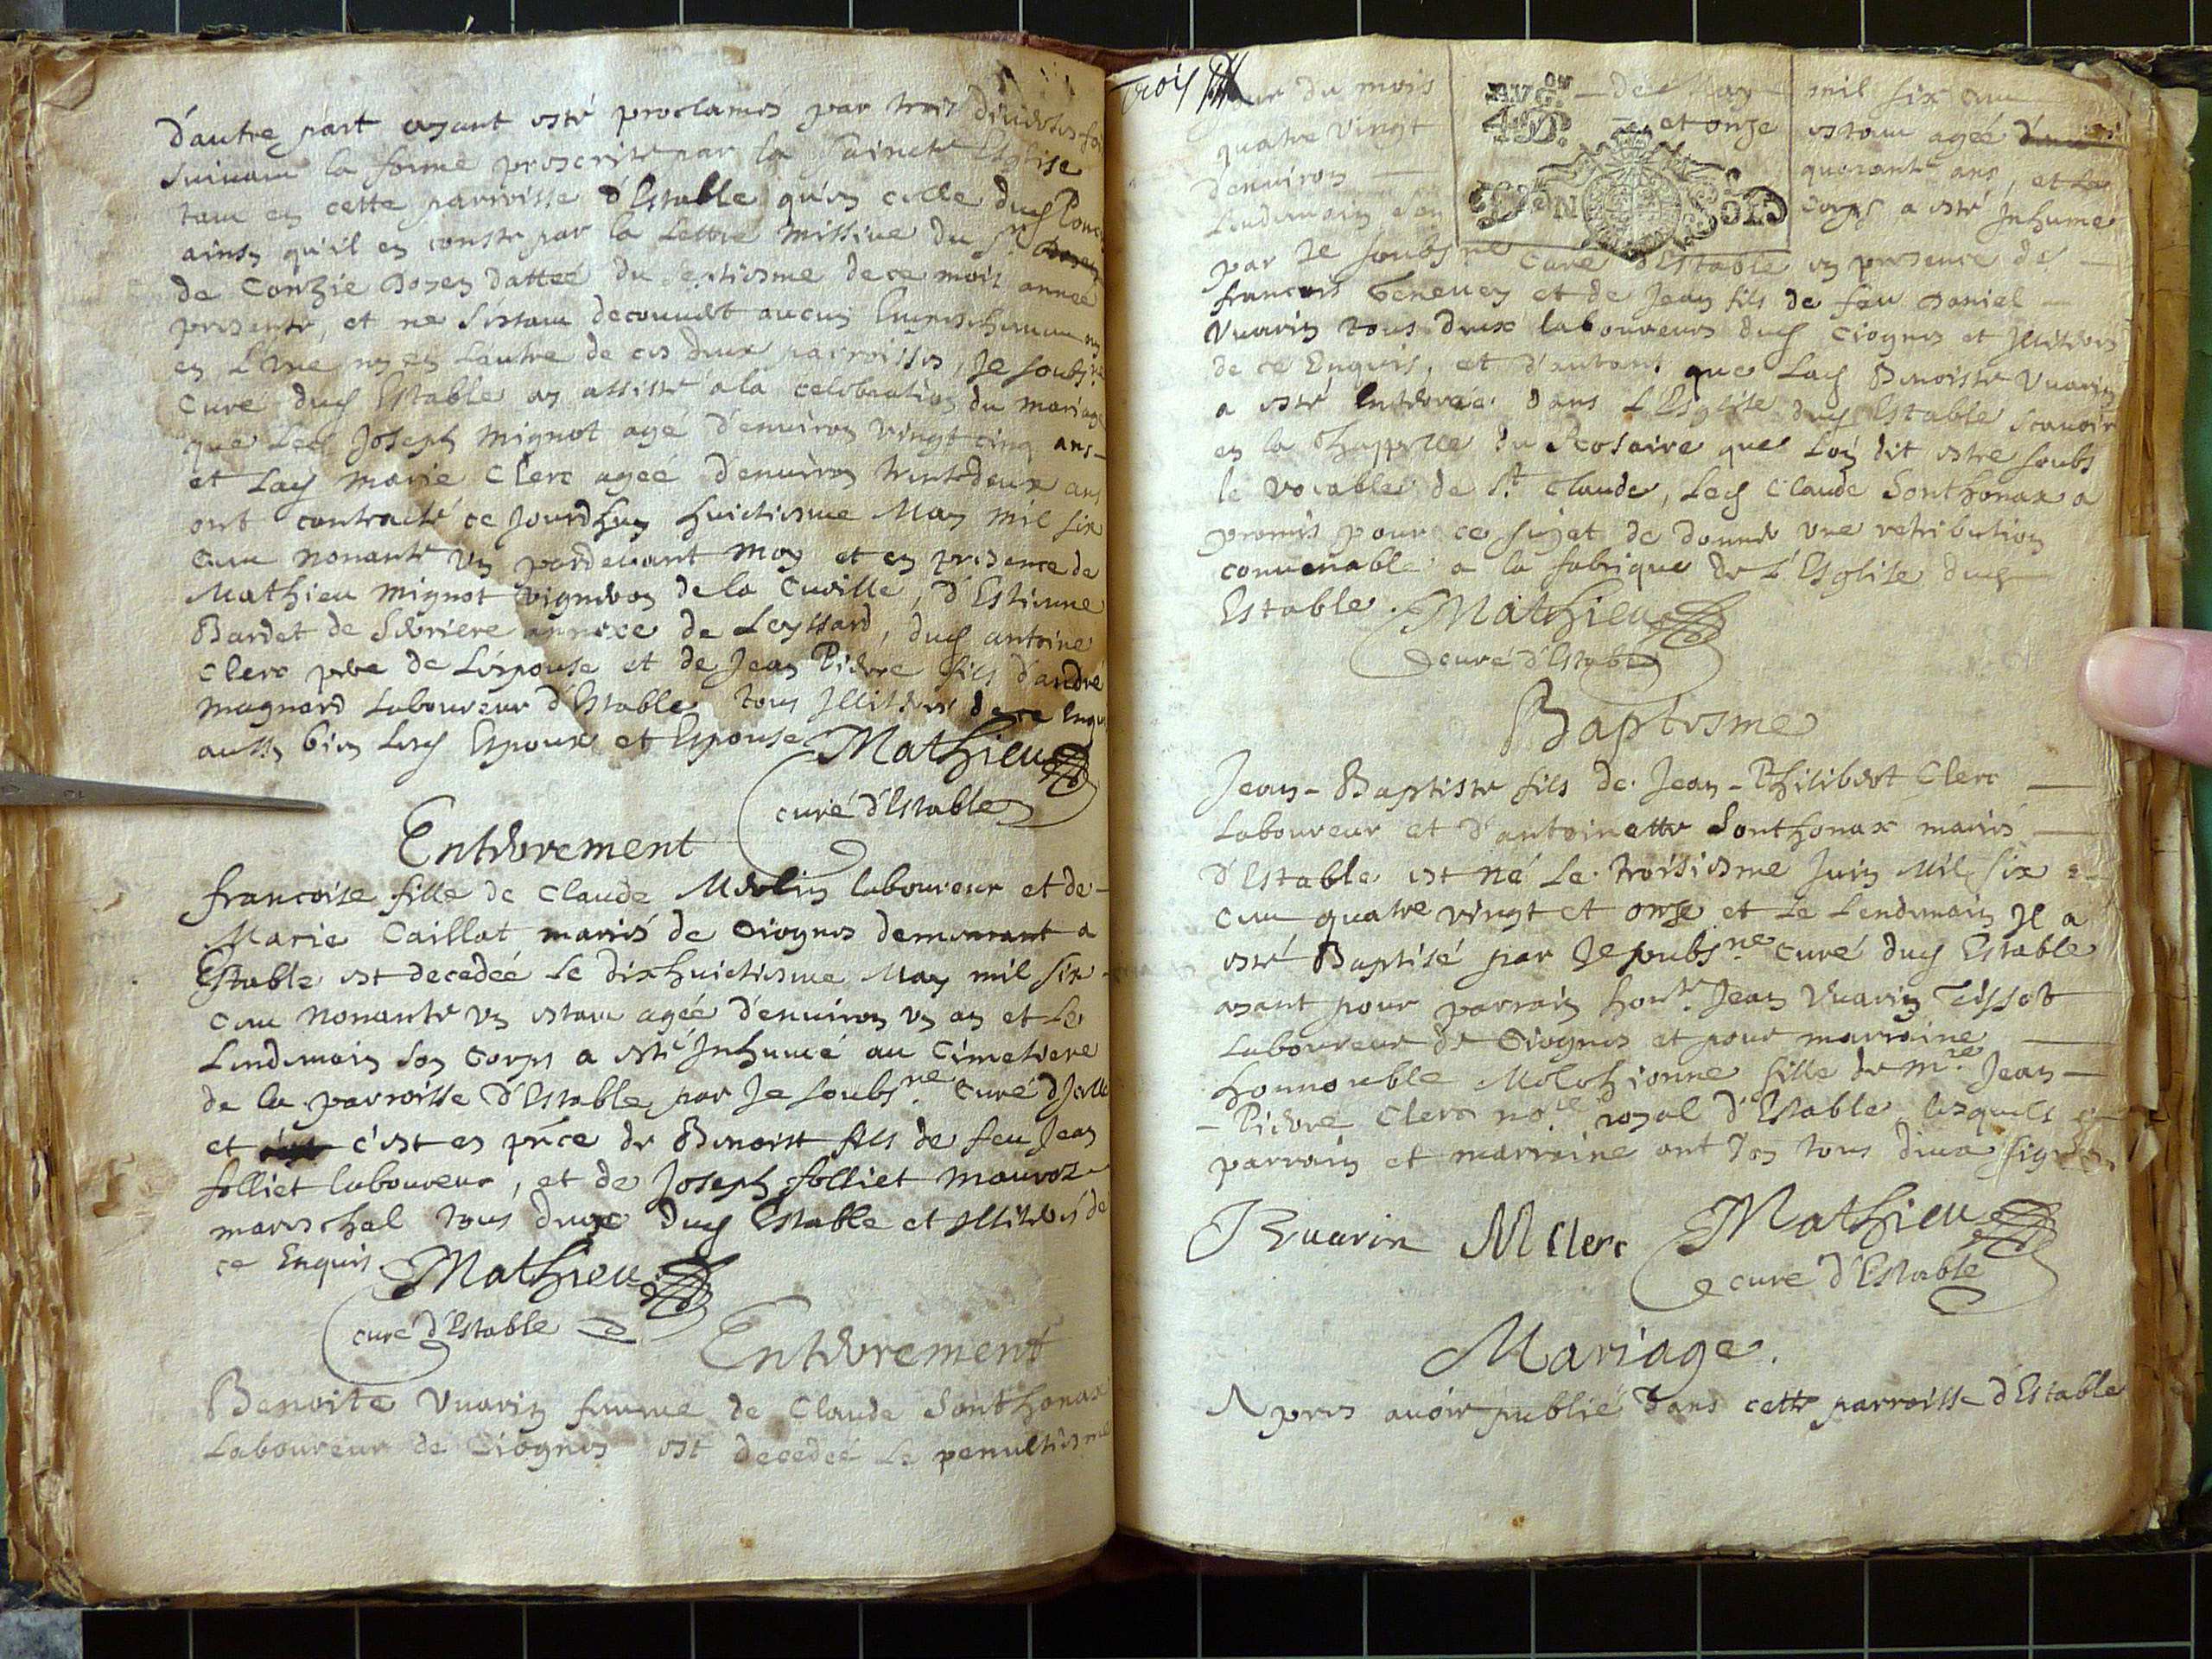 d'autre part ayant esté proclamés par trois diverses foi
suivant la forme prescrite par la saincte Esglise
tant en cette parroisse d'Estable qu'en celle dud Ponc
ainsy qu'il en conste par la Lettre missive du Sr
de Conzie datteé du septiesme de ce mois anneé
presente, et ne s'estant decouvert aucun Empeschement
en L'une ny en L'autre de ces deux parroisses, Je soubsne
Curé dud Estable ay assisté a la celebration du mariage
que Led Joseph Mignot agé d'environ vingt cinq ans
et Lad Marie Clerc ageé d'environ trente deux ans
ont contracté ce Jourdhuy huictiesme May mil six
cent nonante un pardevant moy et en presence de
Mathieu Mignot vigneron de la Cueille, d'Estienne
Bardet de Serriere annexe de Leyssard, dud antoine
Clerc pere de L'espouse et de Jean Pierre fils d'andré
Magnard Laboureur d'Estable tous Illiteres de ce Enquis
aussy bien Lesd Espoux et Espouse Mathieu
curé d'Estable
Enterrement
francoise fille de Claude Merlin laboureur et de
Marie Caillat mariés de Ciognes demeurant a
Estable est decedeé le dixhuictiesme May mil six
cent nonante un estant ageé d'environ un an et Le
Lendemain son Corps a esté Inhumé au Cimetiere
de la parroisse d'Estable par Je soubsne Curé d'Icelle
et c'est en pñce de Benoist fils de feu Jean
folliet laboureur, et de Joseph folliet Mauroz
mareschal tous deux dud Estable et Illiteres de
ce Enquis. Mathieu
curé d'Estable
Enterrement
Benoite Vuarin femme de Claude Sonthonax
Laboureur de Ciognes est decedeé Le penultiesme
trois
jour du mois de May mil six cent
quatre vingt et onze estant ageé
d'environ quarante ans, et
Lendemain son Corps a esté Inhumé
AVG.ON
4.D.
GEN DEUX SOLS
par Je soubsne Curé d'Estable en presence de
francois Genevey et de Jean fils de feu Daniel
Vuarin tous deux laboureurs dud Ciognes et Illiteres
de ce Enquis, et d'autant que Lad Benoiste Vuarin
a esté Enterreé dans L'Esglise dud Estable scavoir
en la Chappelle du Rosaire que L'on dit estre soubs
le vocable de St Claude, Led Claude Sonthonax a
promis pour ce sujet de donner une retribution
convenable a la fabrique de L'Esglise dud
Estable. Mathieu
curé d'Estable
Baptesme
Jean-Baptiste fils de Jean-Philibert Clerc
Laboureur et d'antoinette Sonthonax mariés
d'Estable est né Le troisiesme Juin Mil six
cent quatre vingt et onze et Le Lendemain Il a
esté Baptisé par Je soubsne Curé dud Estable
ayant pour parrain honle Jean Vuarin Tissot
Laboureur de Ciognes et pour marraine
honnorable Melchionne fille de mre Jean
-Pierre Clerc nore royal d'Estable lesquels
parrain et marraine ont tous deux signés.
J Bvarin M Clerc Mathieu
curé d'Estable
Mariage.
Apres avoir publié dans cette parroisse d'Estable